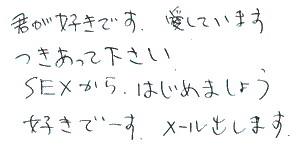 君が好きです. 愛しています
つきあって下さい
SEXから.はじめましょう
好きでーす. メール出します.